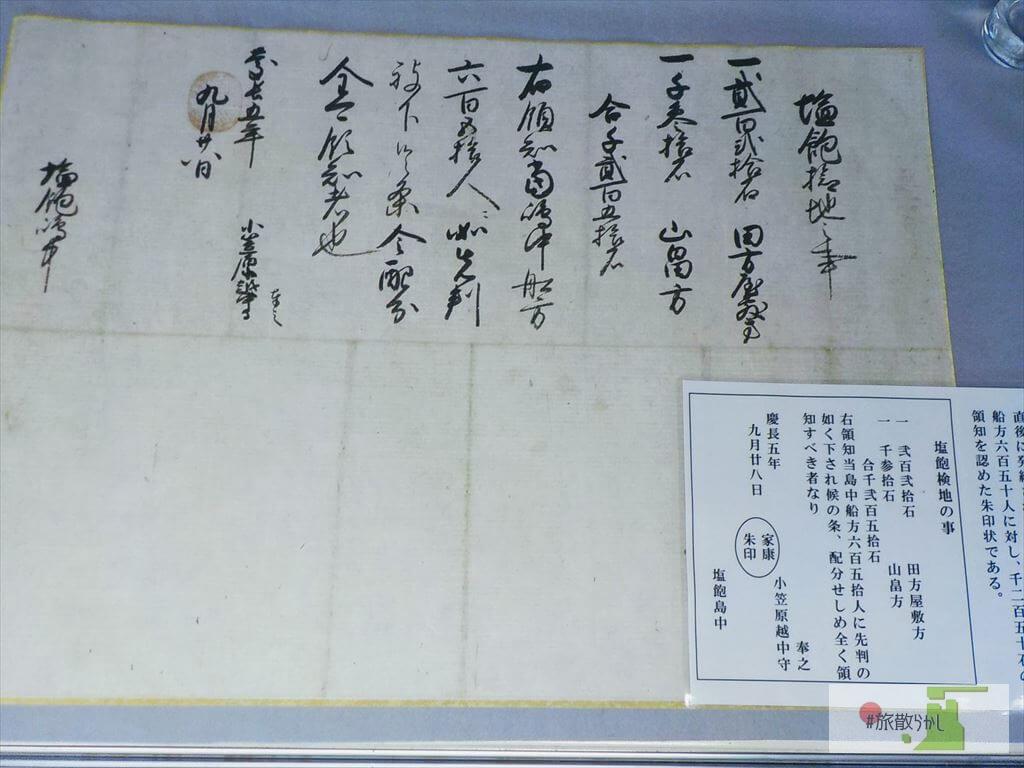 塩飽検地之事
一 弐百弐拾石 田方屋敷方
一 千参拾石 山畠方
合千弐百五拾石
右領知当嶋中船方
六百五拾人ニ如先判
被下候条令配分
全可領知者也
慶長五年
小笠原越中守
奉之
九月廿八日
塩飽嶋中
直後に発給
船方六百五十人に対し、千二百五十石の
領知を認めた朱印状である。
塩飽検地の事
一 弐百弐拾石 田方屋敷方
一 千参拾石 山畠方
合千弐百五拾石
右領知当島中船方六百五拾人に先判の
如く下され候の条、配分せしめ全く領
知すべき者なり
慶長五年
九月廿八日
家康
朱印
小笠原越中守
奉之
塩飽島中
#旅散らかし